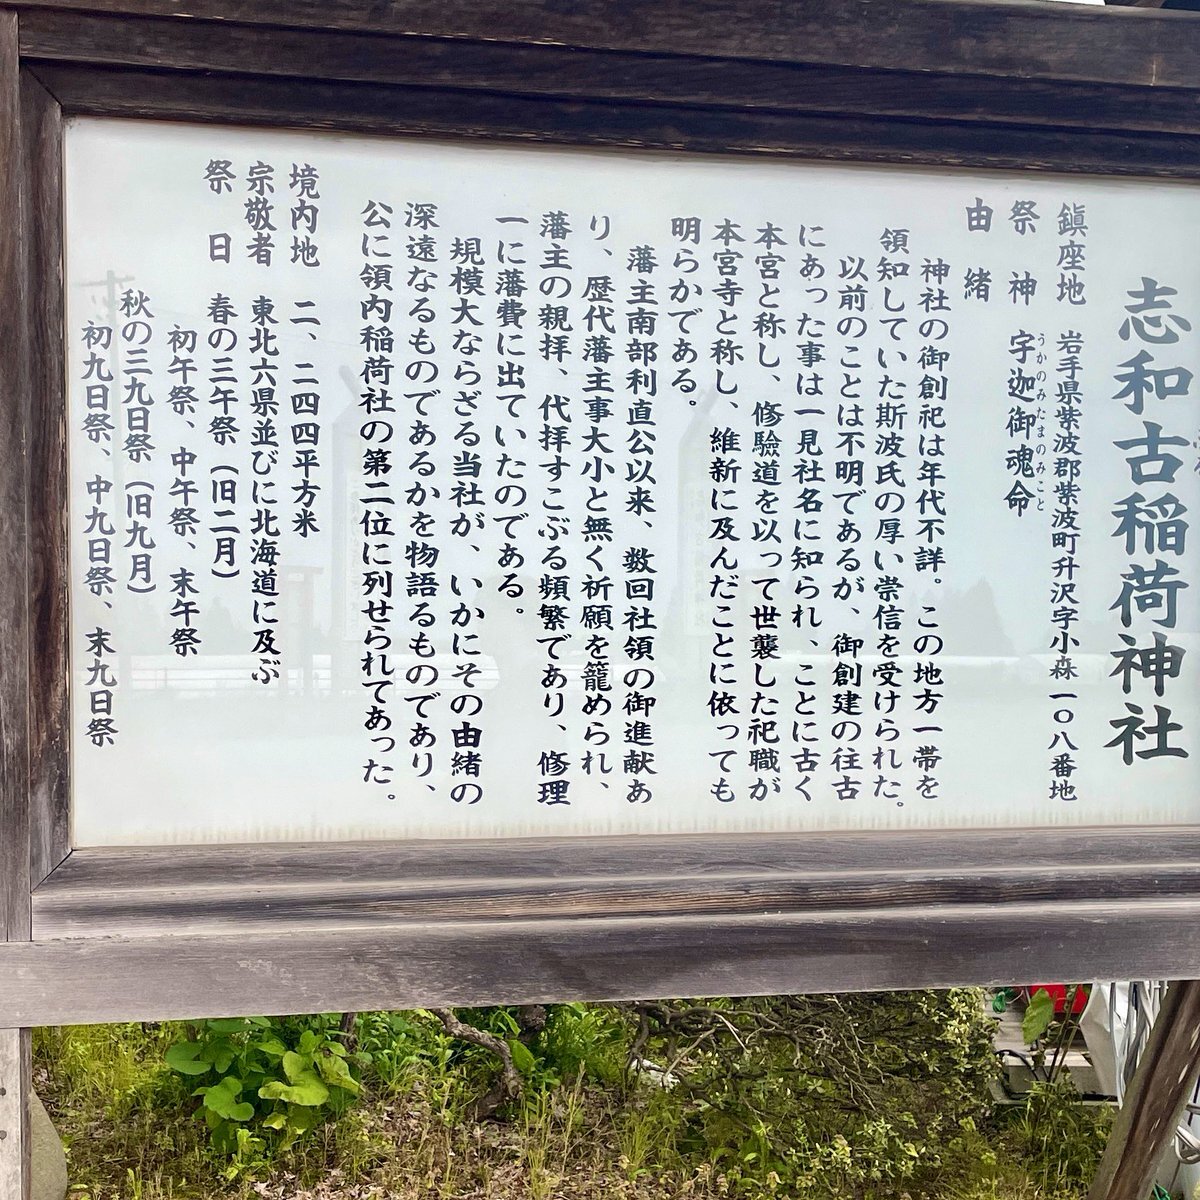 志和古稲荷神社
鎮座地 岩手県紫波郡紫波町升沢字小森一〇八番地
祭神 字迦御魂命
うかのみたまのみこと
由緒
神社の御創祀は年代不詳。この地方一帯を
領知していた斯波氏の厚い崇信を受けられた。
以前のことは不明であるが、御創建の往古
にあった事は一見社名に知られ、ことに古く
本宮と称し、修験道を以って世襲した祀職が
本宮寺と称し、維新に及んだことに依っても
明らかである。
藩主南部利直公以来、数回社領の御進献あ
り、歴代藩主事大小と無く祈願を籠められ、
藩主の親拝、代拝すこぶる頻繁であり、修理
一に藩費に出ていたのである。
規模大ならざる当社が、いかにその由緒の
深遠なるものであるかを物語るものであり、
公に領内稲荷社の第二位に列せられてあった。
境内地 二、二四四平方米
宗敬者 東北六県並びに北海道に及ぶ
祭日 春の三午祭（旧二月）
初午祭、中午祭、末午祭
秋の三九日祭（旧九月）
初九日祭、中九日祭、末九日祭